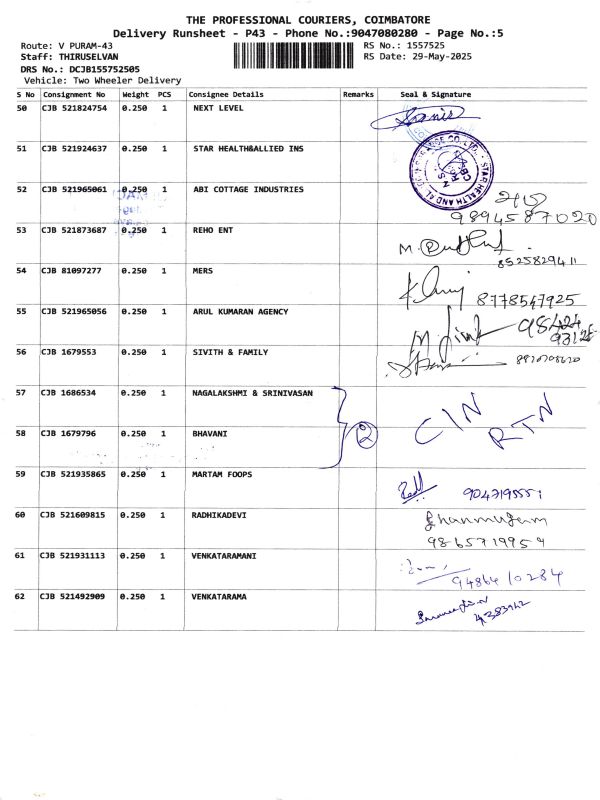 THE PROFESSIONAL COURIERS, COIMBATORE
Delivery Runsheet - P43 - Phone No.:9047080280 - Page No.:5
Route: V PURAM-43 RS No.: 1557525
Staff: THIRUSELVAN RS Date: 29-May-2025
DRS No.: DCJB155752505
Vehicle: Two Wheeler Delivery
S No Consignment No Weight PCS Consignee Details Remarks Seal & Signature
50 CJB 521824754 0.250 1 NEXT LEVEL
51 CJB 521924637 0.250 1 STAR HEALTH&ALLIED INS
52 CJB 521965061 0.250 1 ABI COTTAGE INDUSTRIES
9894587020
53 CJB 521873687 0.250 1 REHO ENT
8525829411
54 CJB 81097277 0.250 1 MERS
8778547925
55 CJB 521965056 0.250 1 ARUL KUMARAN AGENCY
56 CJB 1679553 0.250 1 SIVITH & FAMILY
57 CJB 1686534 0.250 1 NAGALAKSHMI & SRINIVASAN
58 CJB 1679796 0.250 1 BHAVANI 2 CIN RTN
59 CJB 521935865 0.250 1 MARTAM FOOPS
9047195551
60 CJB 521609815 0.250 1 RADHIKADEVI
Shanmugam
9865719954
61 CJB 521931113 0.250 1 VENKATARAMANI
9486410284
62 CJB 521492909 0.250 1 VENKATARAMA